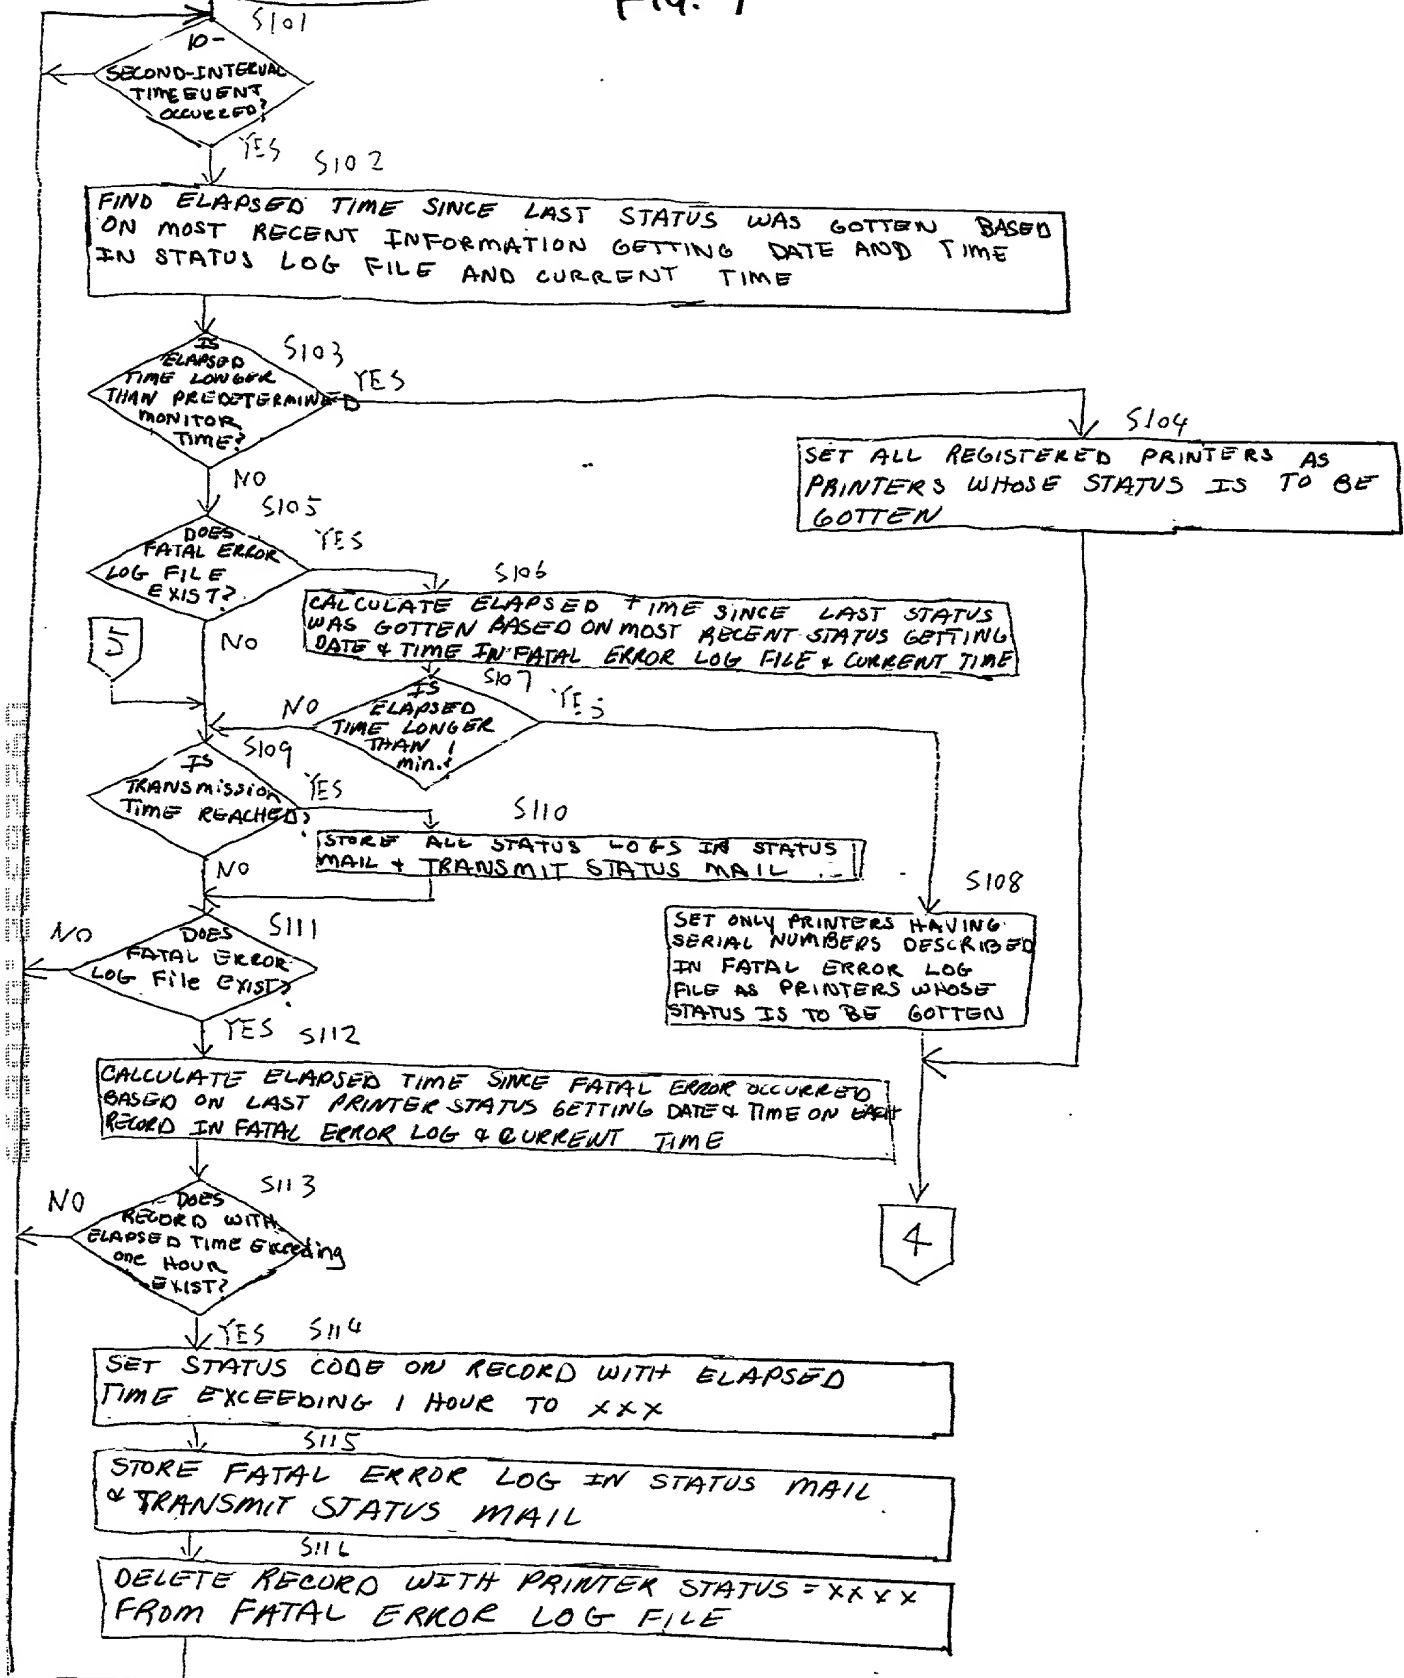 Fig. 7
S101
10-
SECOND-INTERVAL
TIME EVENT
OCCURRED?
YES
S102
FIND ELAPSED TIME SINCE LAST STATUS WAS GOTTEN BASED
ON MOST RECENT INFORMATION GETTING DATE AND TIME
IN STATUS LOG FILE AND CURRENT TIME
IS
ELAPSED
TIME LONGER
THAN PREDETERMINED
MONITOR
TIME?
S103
YES
NO
S104
SET ALL REGISTERED PRINTERS AS
PRINTERS WHOSE STATUS IS TO BE
GOTTEN
S105
DOES
FATAL ERROR
LOG FILE
EXIST?
YES
NO
S106
CALCULATE ELAPSED TIME SINCE LAST STATUS
WAS GOTTEN BASED ON MOST RECENT STATUS GETTING
DATE & TIME IN FATAL ERROR LOG FILE & CURRENT TIME
5
S107
IS
ELAPSED
TIME LONGER
THAN 1
min.?
NO
YES
S109
IS
TRANSmission
TIME REACHED?
YES
NO
S110
STORE ALL STATUS LOGS IN STATUS
MAIL & TRANSMIT STATUS MAIL
S108
SET ONLY PRINTERS HAVING
SERIAL NUMBERS DESCRIBED
IN FATAL ERROR LOG
FILE AS PRINTERS WHOSE
STATUS IS TO BE GOTTEN
S111
DOES
FATAL ERROR
LOG File EXIST?
NO
YES
S112
CALCULATE ELAPSED TIME SINCE FATAL ERROR OCCURRED
BASED ON LAST PRINTER STATUS GETTING DATE & TIME ON EACH
RECORD IN FATAL ERROR LOG & CURRENT TIME
4
S113
DOES
RECORD WITH
ELAPSED TIME Exceeding
one HOUR
EXIST?
NO
YES
S114
SET STATUS CODE ON RECORD WITH ELAPSED
TIME EXCEEDING 1 HOUR TO XXX
S115
STORE FATAL ERROR LOG IN STATUS MAIL
& TRANSMIT STATUS MAIL
S116
DELETE RECORD WITH PRINTER STATUS = XXXX
FROM FATAL ERROR LOG FILE